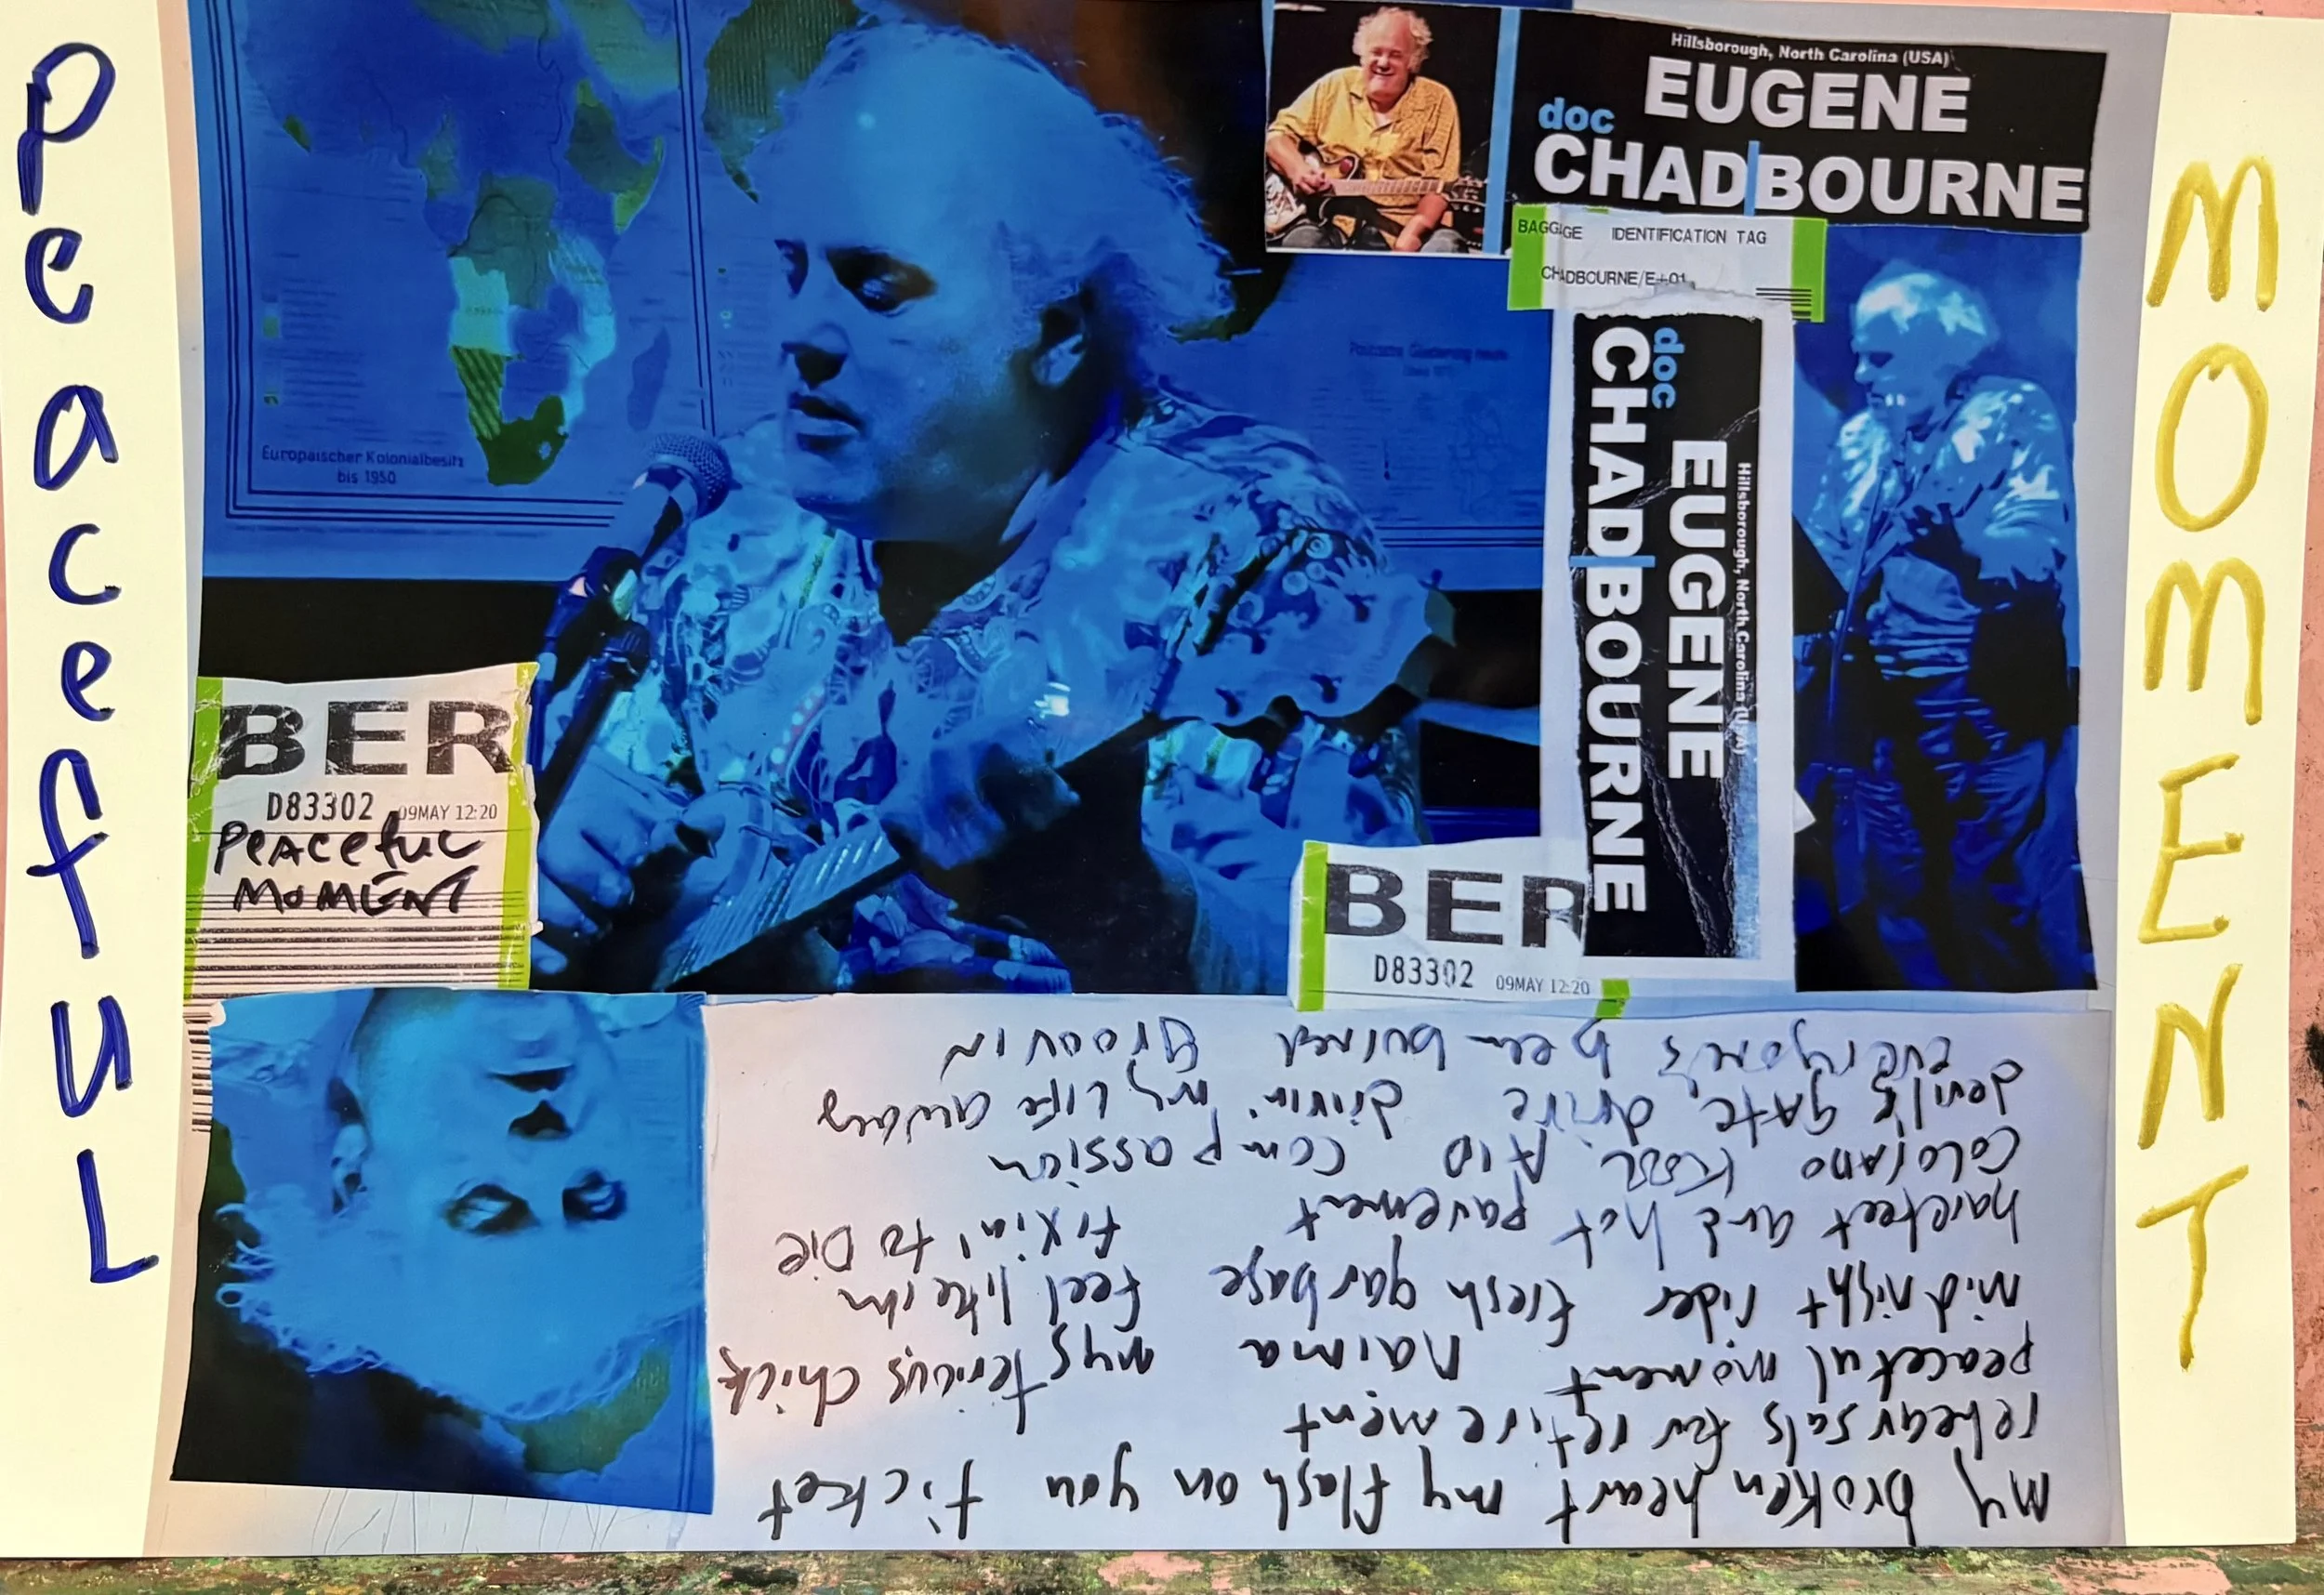 Peaceful
Hillsborough, North Carolina (USA)
EUGENE
doc
CHADBOURNE
BAGGAGE IDENTIFICATION TAG
CHADBOURNE/E+01
doc
CHADBOURNE
EUGENE
Hillsborough, North Carolina (USA)
Europäischer Kolonialbesitz
bis 1950
BER
D83302 09MAY 12:20
PEACEfuL
MOMENT
BER
D83302 09MAY 12:20
MOMENT
my broken heart my flash on you ticket
rehearsals for retirement
peaceful moment naima mysterious chick
midnight rider fresh garbage feel like im
barefeet and hot pavement fixin' to Die
colorado Kool AiD compassion
devil's gate drive givin' my Life away
everyone's been burned groovin